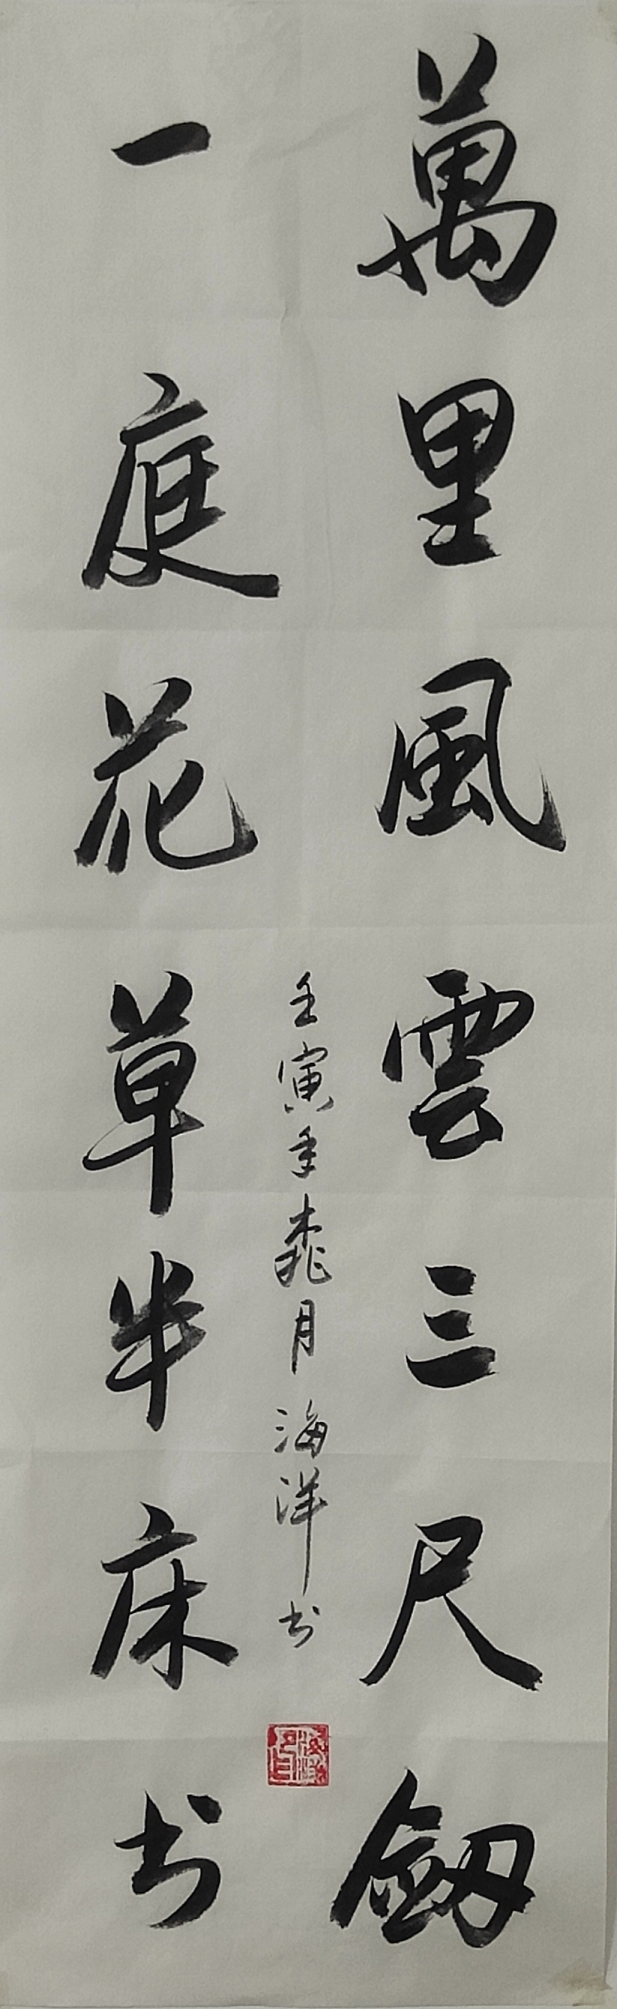 萬里風雲三尺劔
一庭花草半床书
壬寅年桃月海洋书